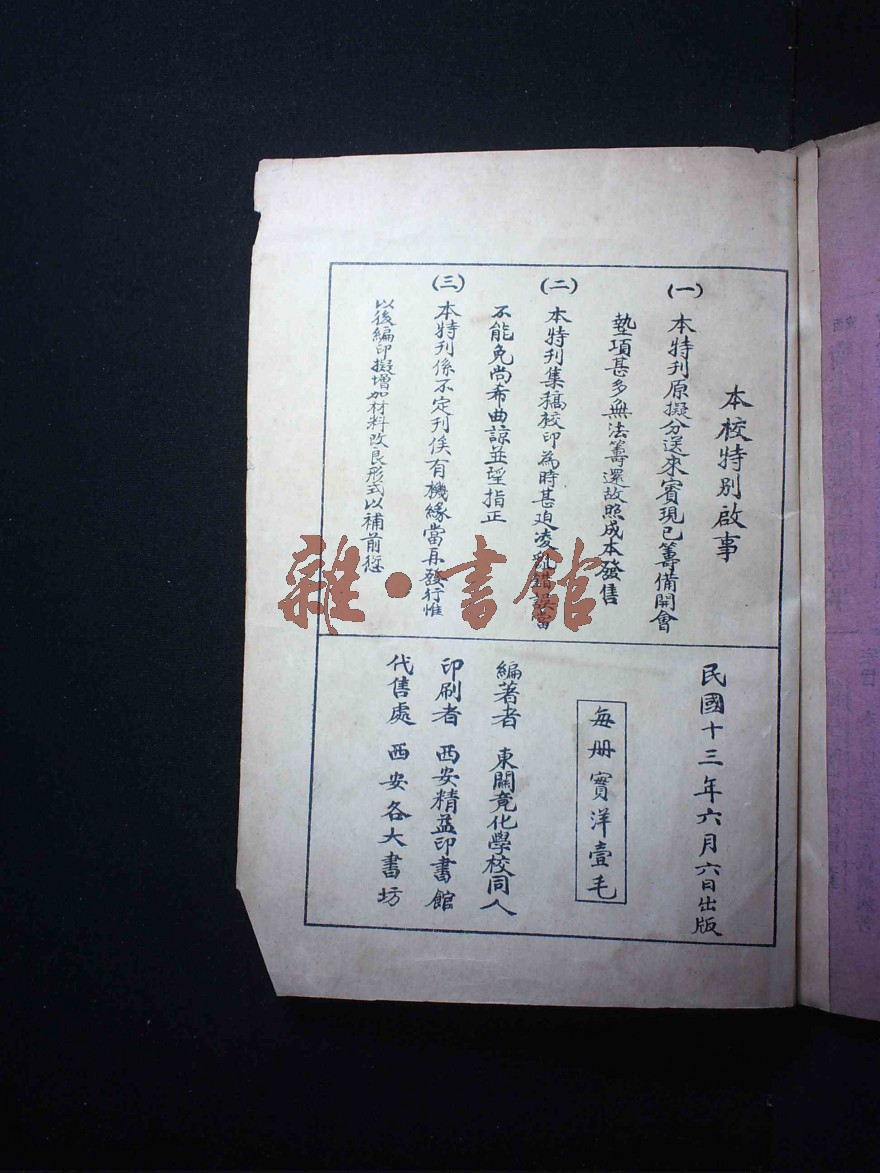 本校特别啟事
(一) 本特刊原擬分送來賓現已籌備開會
墊項甚多無法籌還故照成本發售
(二) 本特刊集稿校印為時甚迫凌亂錯誤當
不能免尚希曲諒並望指正
(三) 本特刊係不定刊俟有機緣當再發行惟
以後編印擬增加材料改良形式以補前愆
民國十三年六月六日出版
每册實洋壹毛
編著者 東關竟化學校同人
印刷者 西安精益印書館
代售處 西安各大書坊
雜·書館